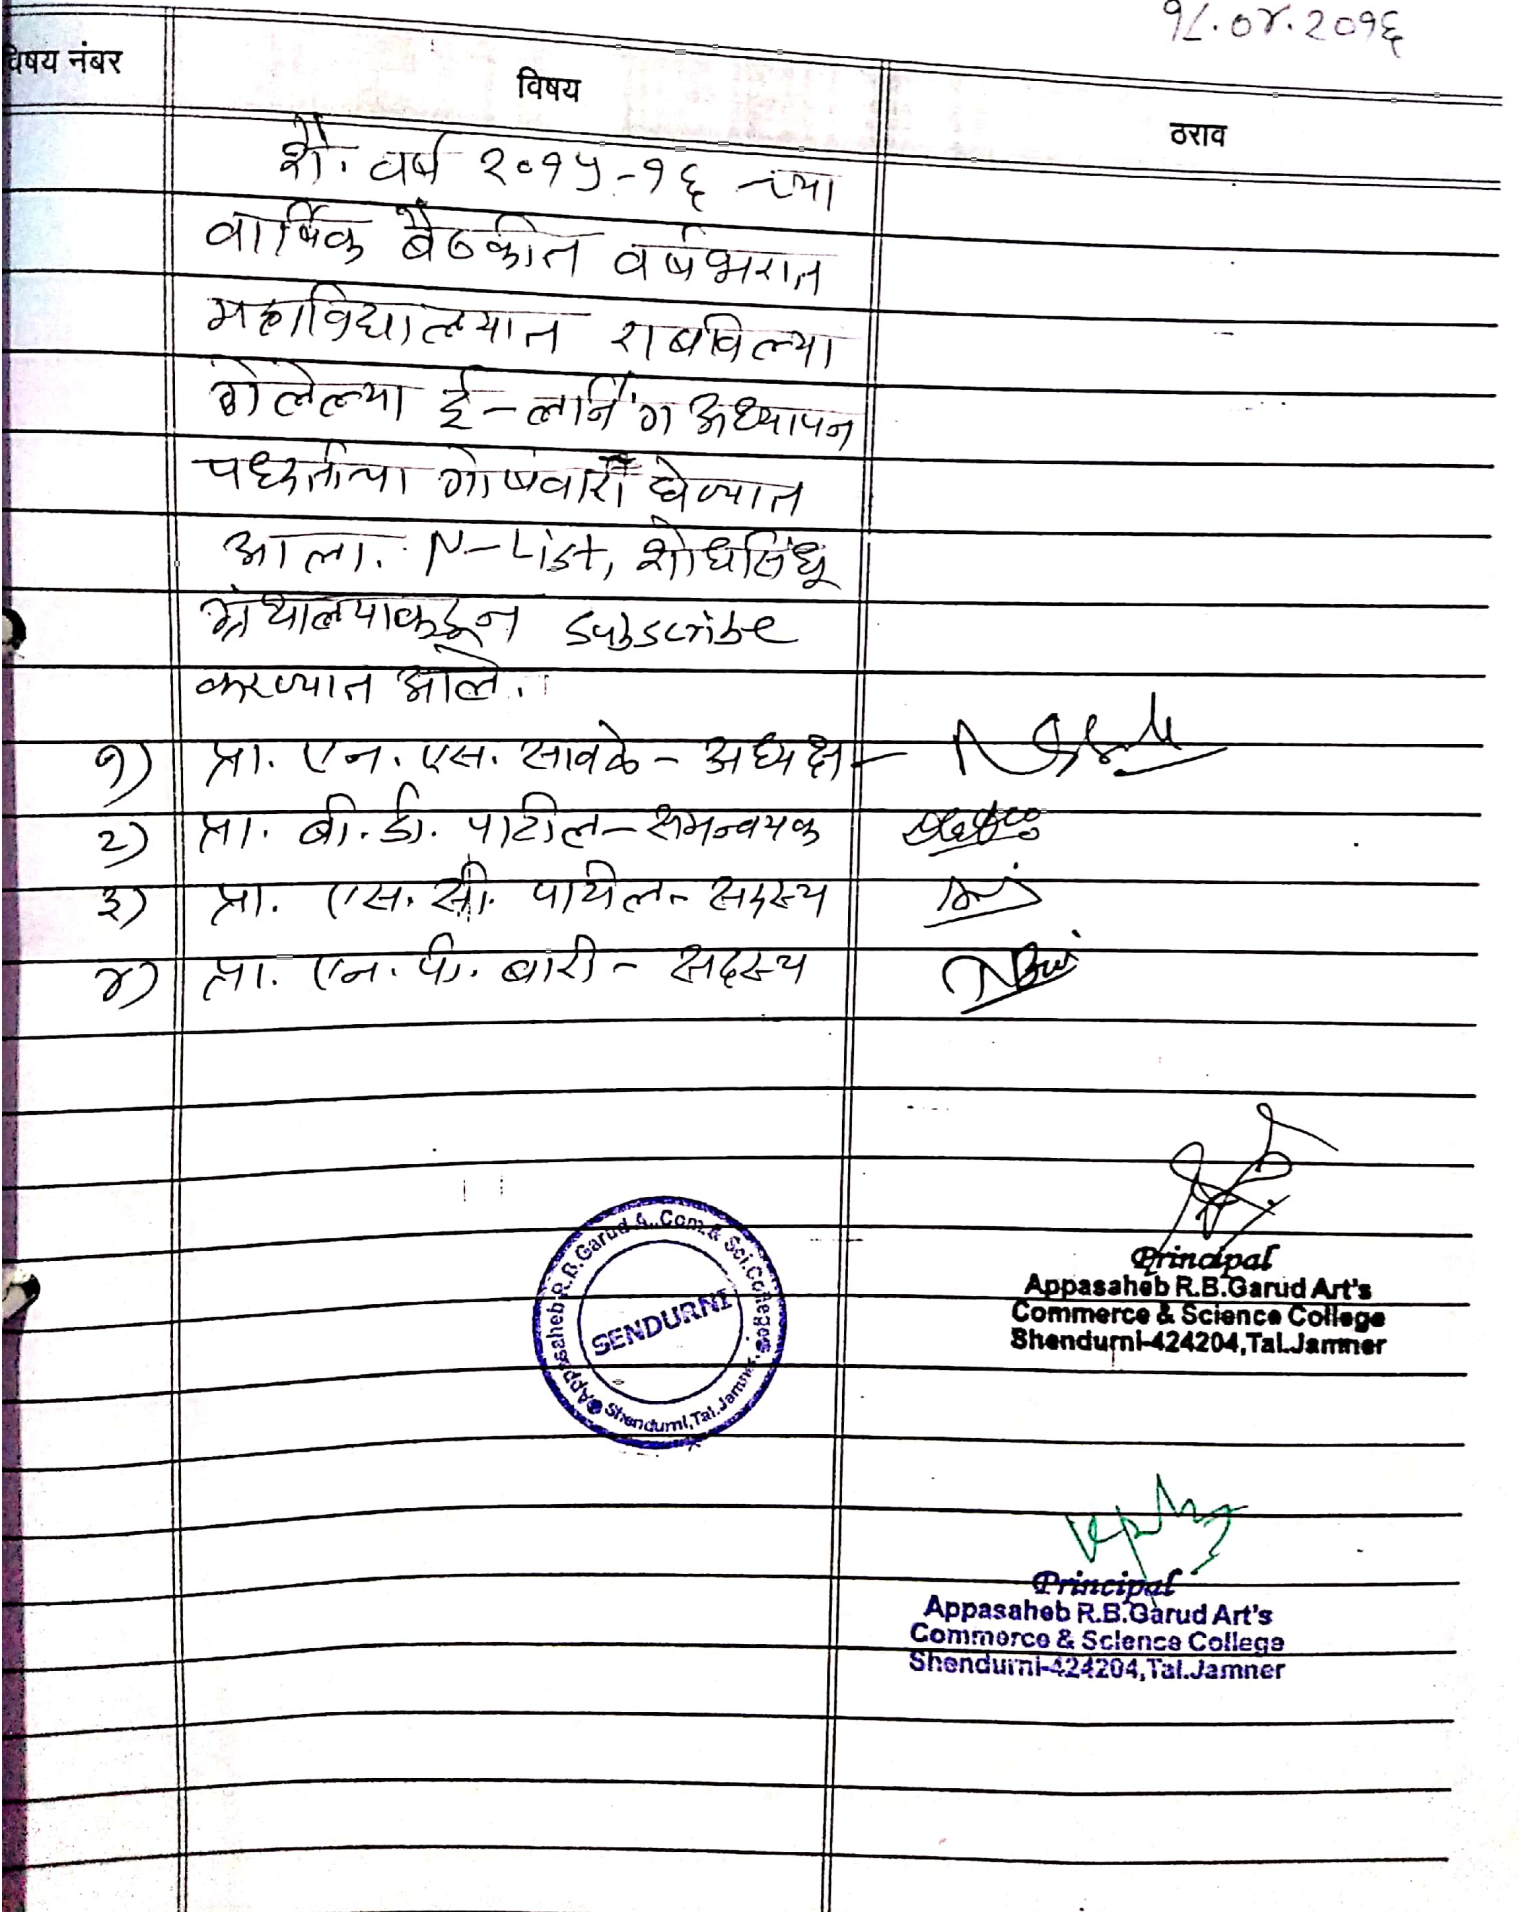 १८.०४.२०१६
विषय नंबर
विषय
ठराव
शै. वर्ष २०१५-१६ च्या
वार्षिक बैठकीत वर्षभरात
महाविद्यालयात राबविल्या
गेलेल्या ई-लर्निंग अध्यापन
पध्दतीचा गोषवारा घेण्यात
आला. N-List, शोधसिंधू
ग्रंथालयाकडून subscribe
करण्यात आले.
१) प्रा. एन. एस. सावळे - अध्यक्ष -
२) प्रा. बी. डी. पाटील - समन्वयक
३) प्रा. एस. सी. पाटील - सदस्य
४) प्रा. एन. पी. बारी - सदस्य
Appasaheb R.B.Garud A.,Com.& Sci.College
SENDURNI
Shendurni,Tal.Jamner.
Principal
Appasaheb R.B.Garud Art's
Commerce & Science College
Shendurni-424204,Tal.Jamner
Principal
Appasaheb R.B.Garud Art's
Commerce & Science College
Shendurni-424204,Tal.Jamner